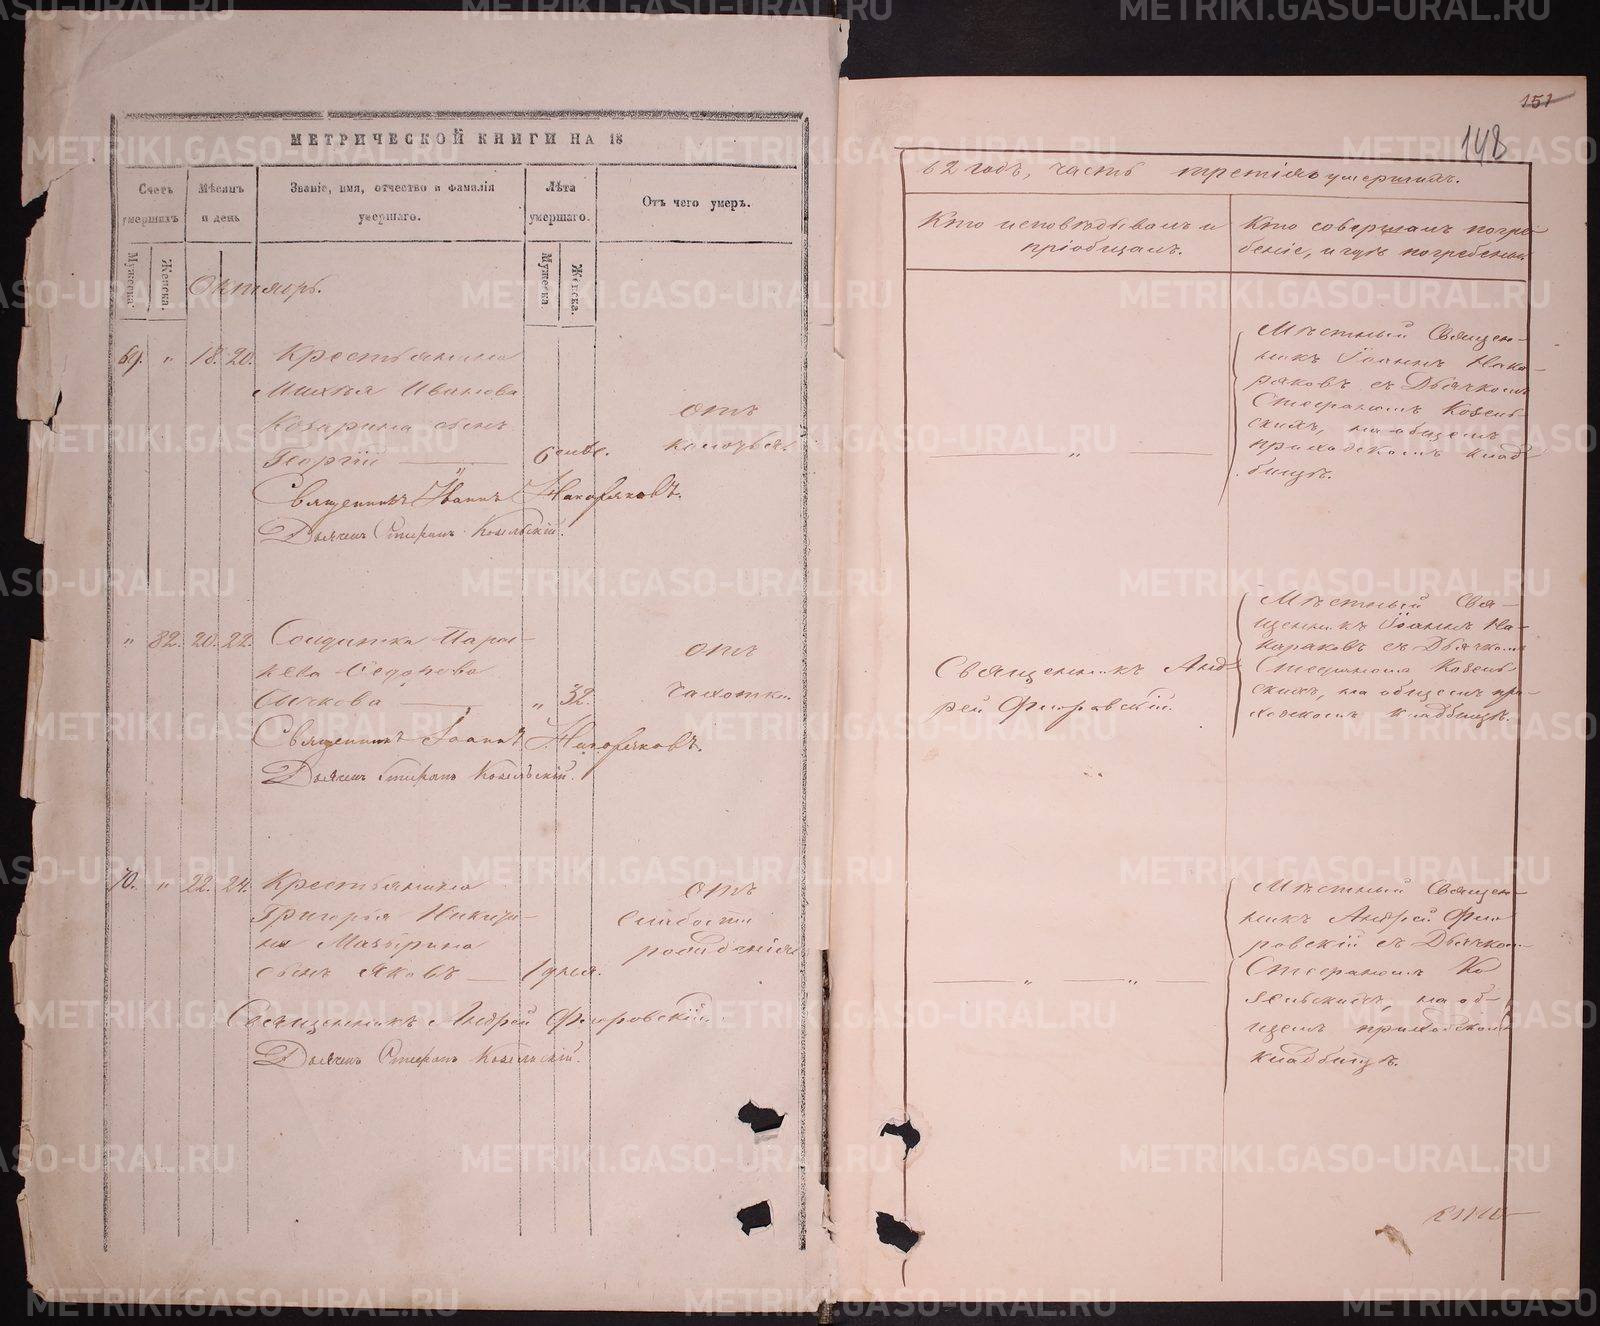 МЕТРИЧЕСКОЙ КНИГИ НА 18
Счетъ умершихъ
Мѣсяцъ и день
Званіе, имя, отчество и фамилія умершаго.
Лѣта умершаго.
Отъ чего умеръ.
Мужеска.
Женска.
Мужеска.
Женска.
Октябрь.
69. " 18. 20. Крестьянина
Михѣя Иванова
сынъ
Георгій — 6 отъ
Священникъ Іоаннъ Накоряковъ.
Дьячекъ Стефанъ Козельскій.
" 82. 20. 22. Солдатка Парас-
кева Ѳедорова отъ
" 32. чахотки.
Священникъ Іоаннъ Накоряковъ.
Дьячекъ Стефанъ Козельскій.
70. " 22. 24. Крестьянина отъ
Григорья Никити- слабости
на Мазырина рожденія
сынъ Яковъ — 1 дня.
Священникъ Андрей Флоровскій.
Дьячекъ Стефанъ Козельскій.
151
148
62 годъ, часть третія о умершихъ.
Кто исповѣдывалъ и
пріобщалъ.
Кто совершалъ погре-
беніе, и гдѣ погребены.
Мѣстный Священ-
никъ Іоаннъ Нако-
ряковъ съ Дьячкомъ
Стефаномъ Козель-
скимъ, на общемъ
приходскомъ клад-
бищѣ.
Священникъ Анд-
рей Флоровскій.
Мѣстный Свя-
щенникъ Іоаннъ На-
каряковъ съ Дьячкомъ
Стефаномъ Козель-
скимъ, на общемъ при-
ходскомъ кладбищѣ.
Мѣстный Священ-
никъ Андрей Фло-
ровскій съ Дьячкомъ
Стефаномъ Ко-
зельскимъ, на об-
щемъ приходскомъ
кладбищѣ.
METRIKI.GASO-URAL.RU